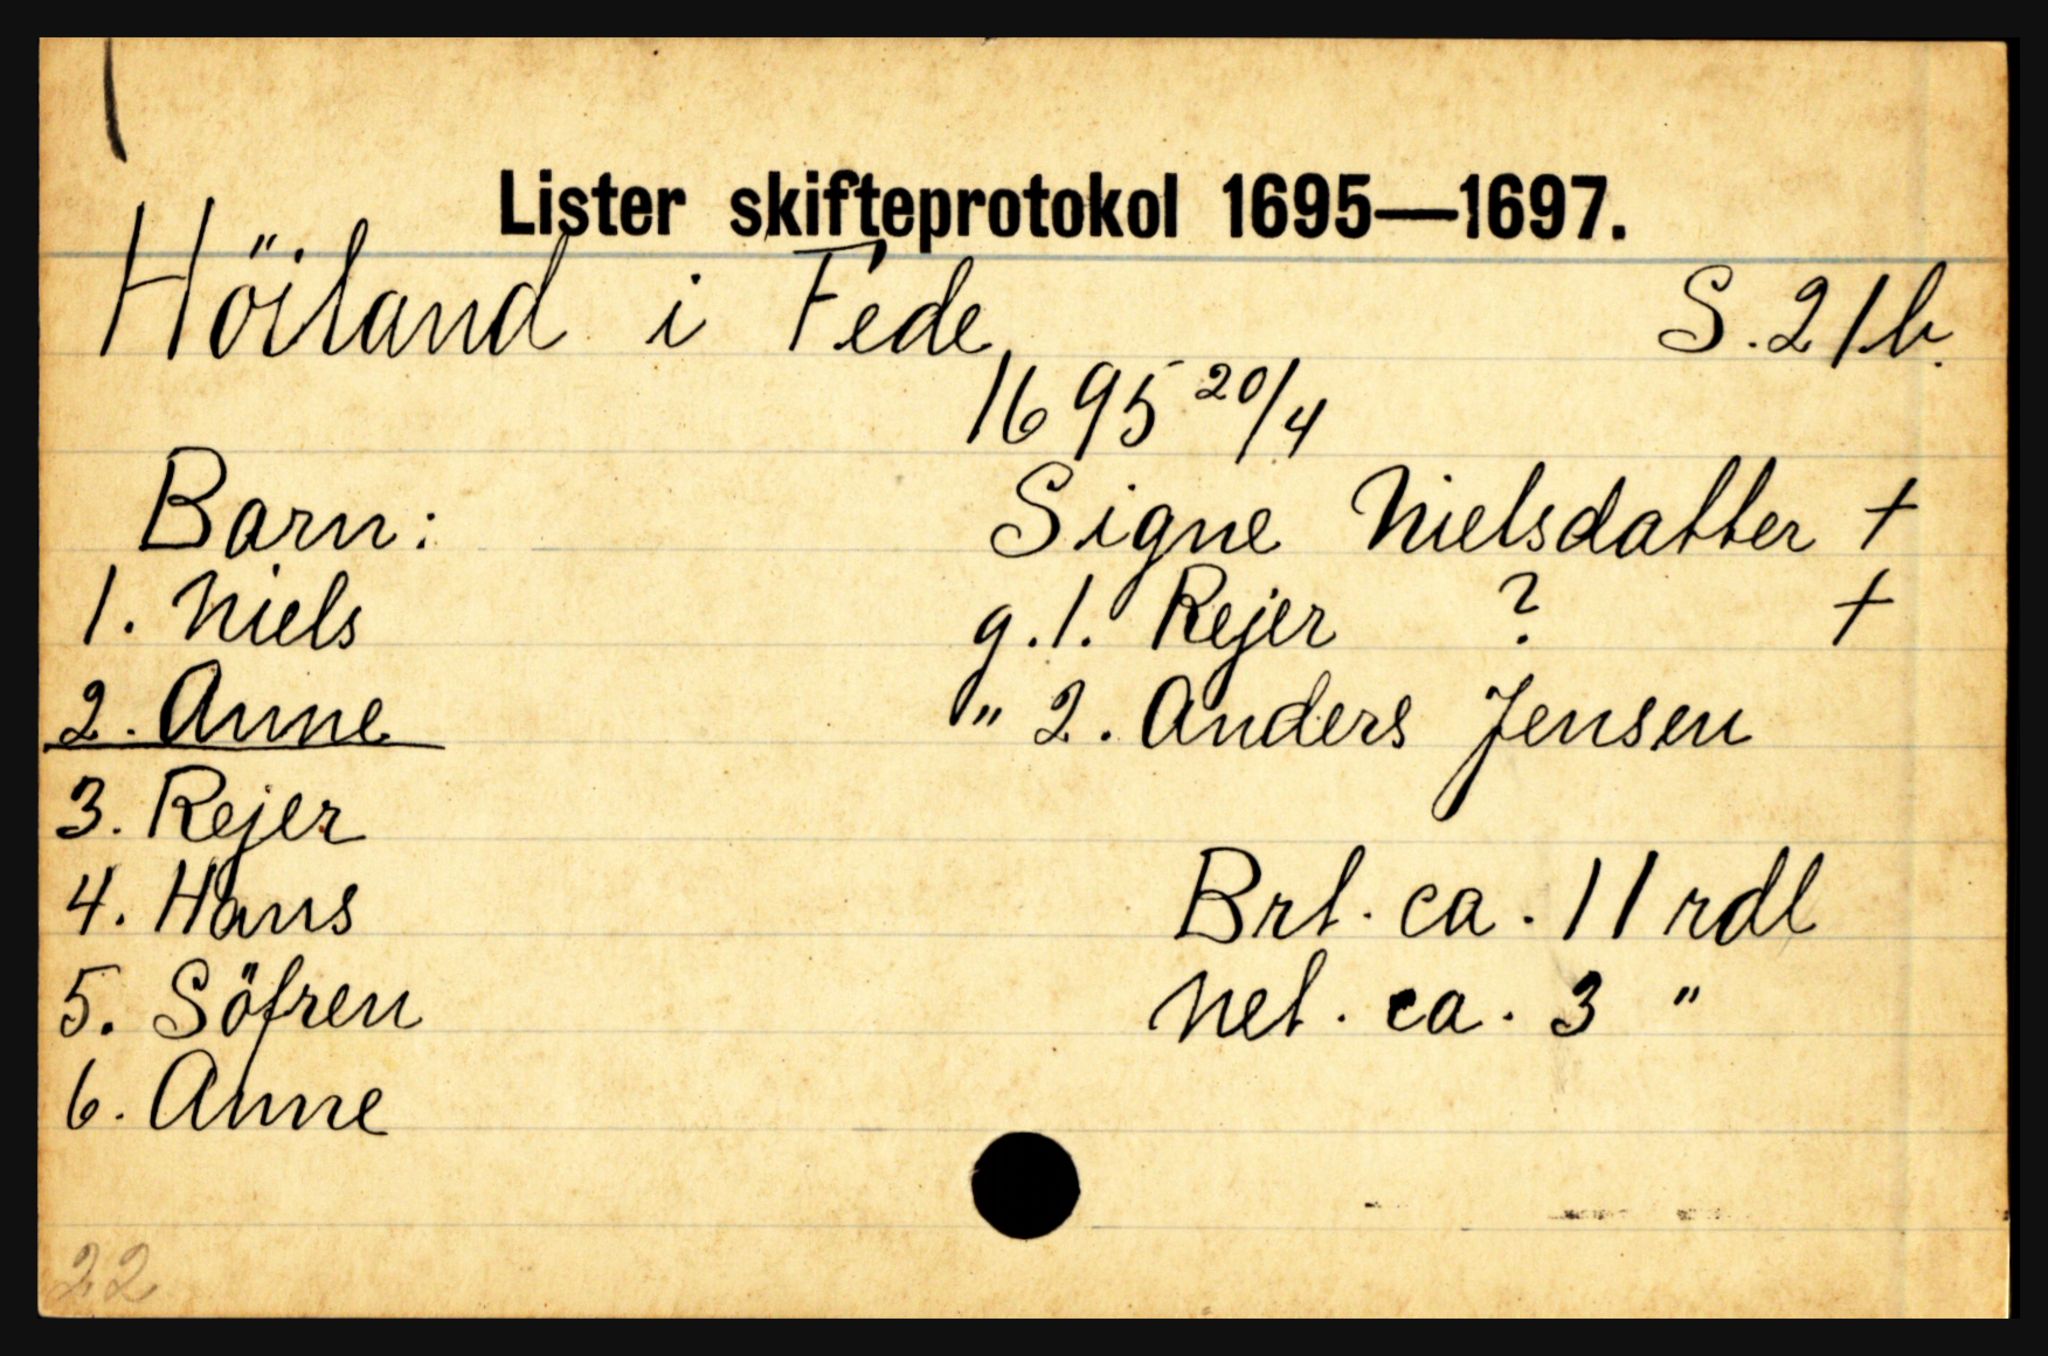 Lister skifteprotokol 1695—1697.
Höiland i Fede S. 21b.
1695 20/4
Barn: Signe Nielsdatter +
1. Niels g. 1. Rejer ? +
2. Anne " 2. Anders Jensen
3. Rejer
4. Hans Brt. ca. 11 rdl
5. Söfren Net. ca. 3 "
6. Anne
22